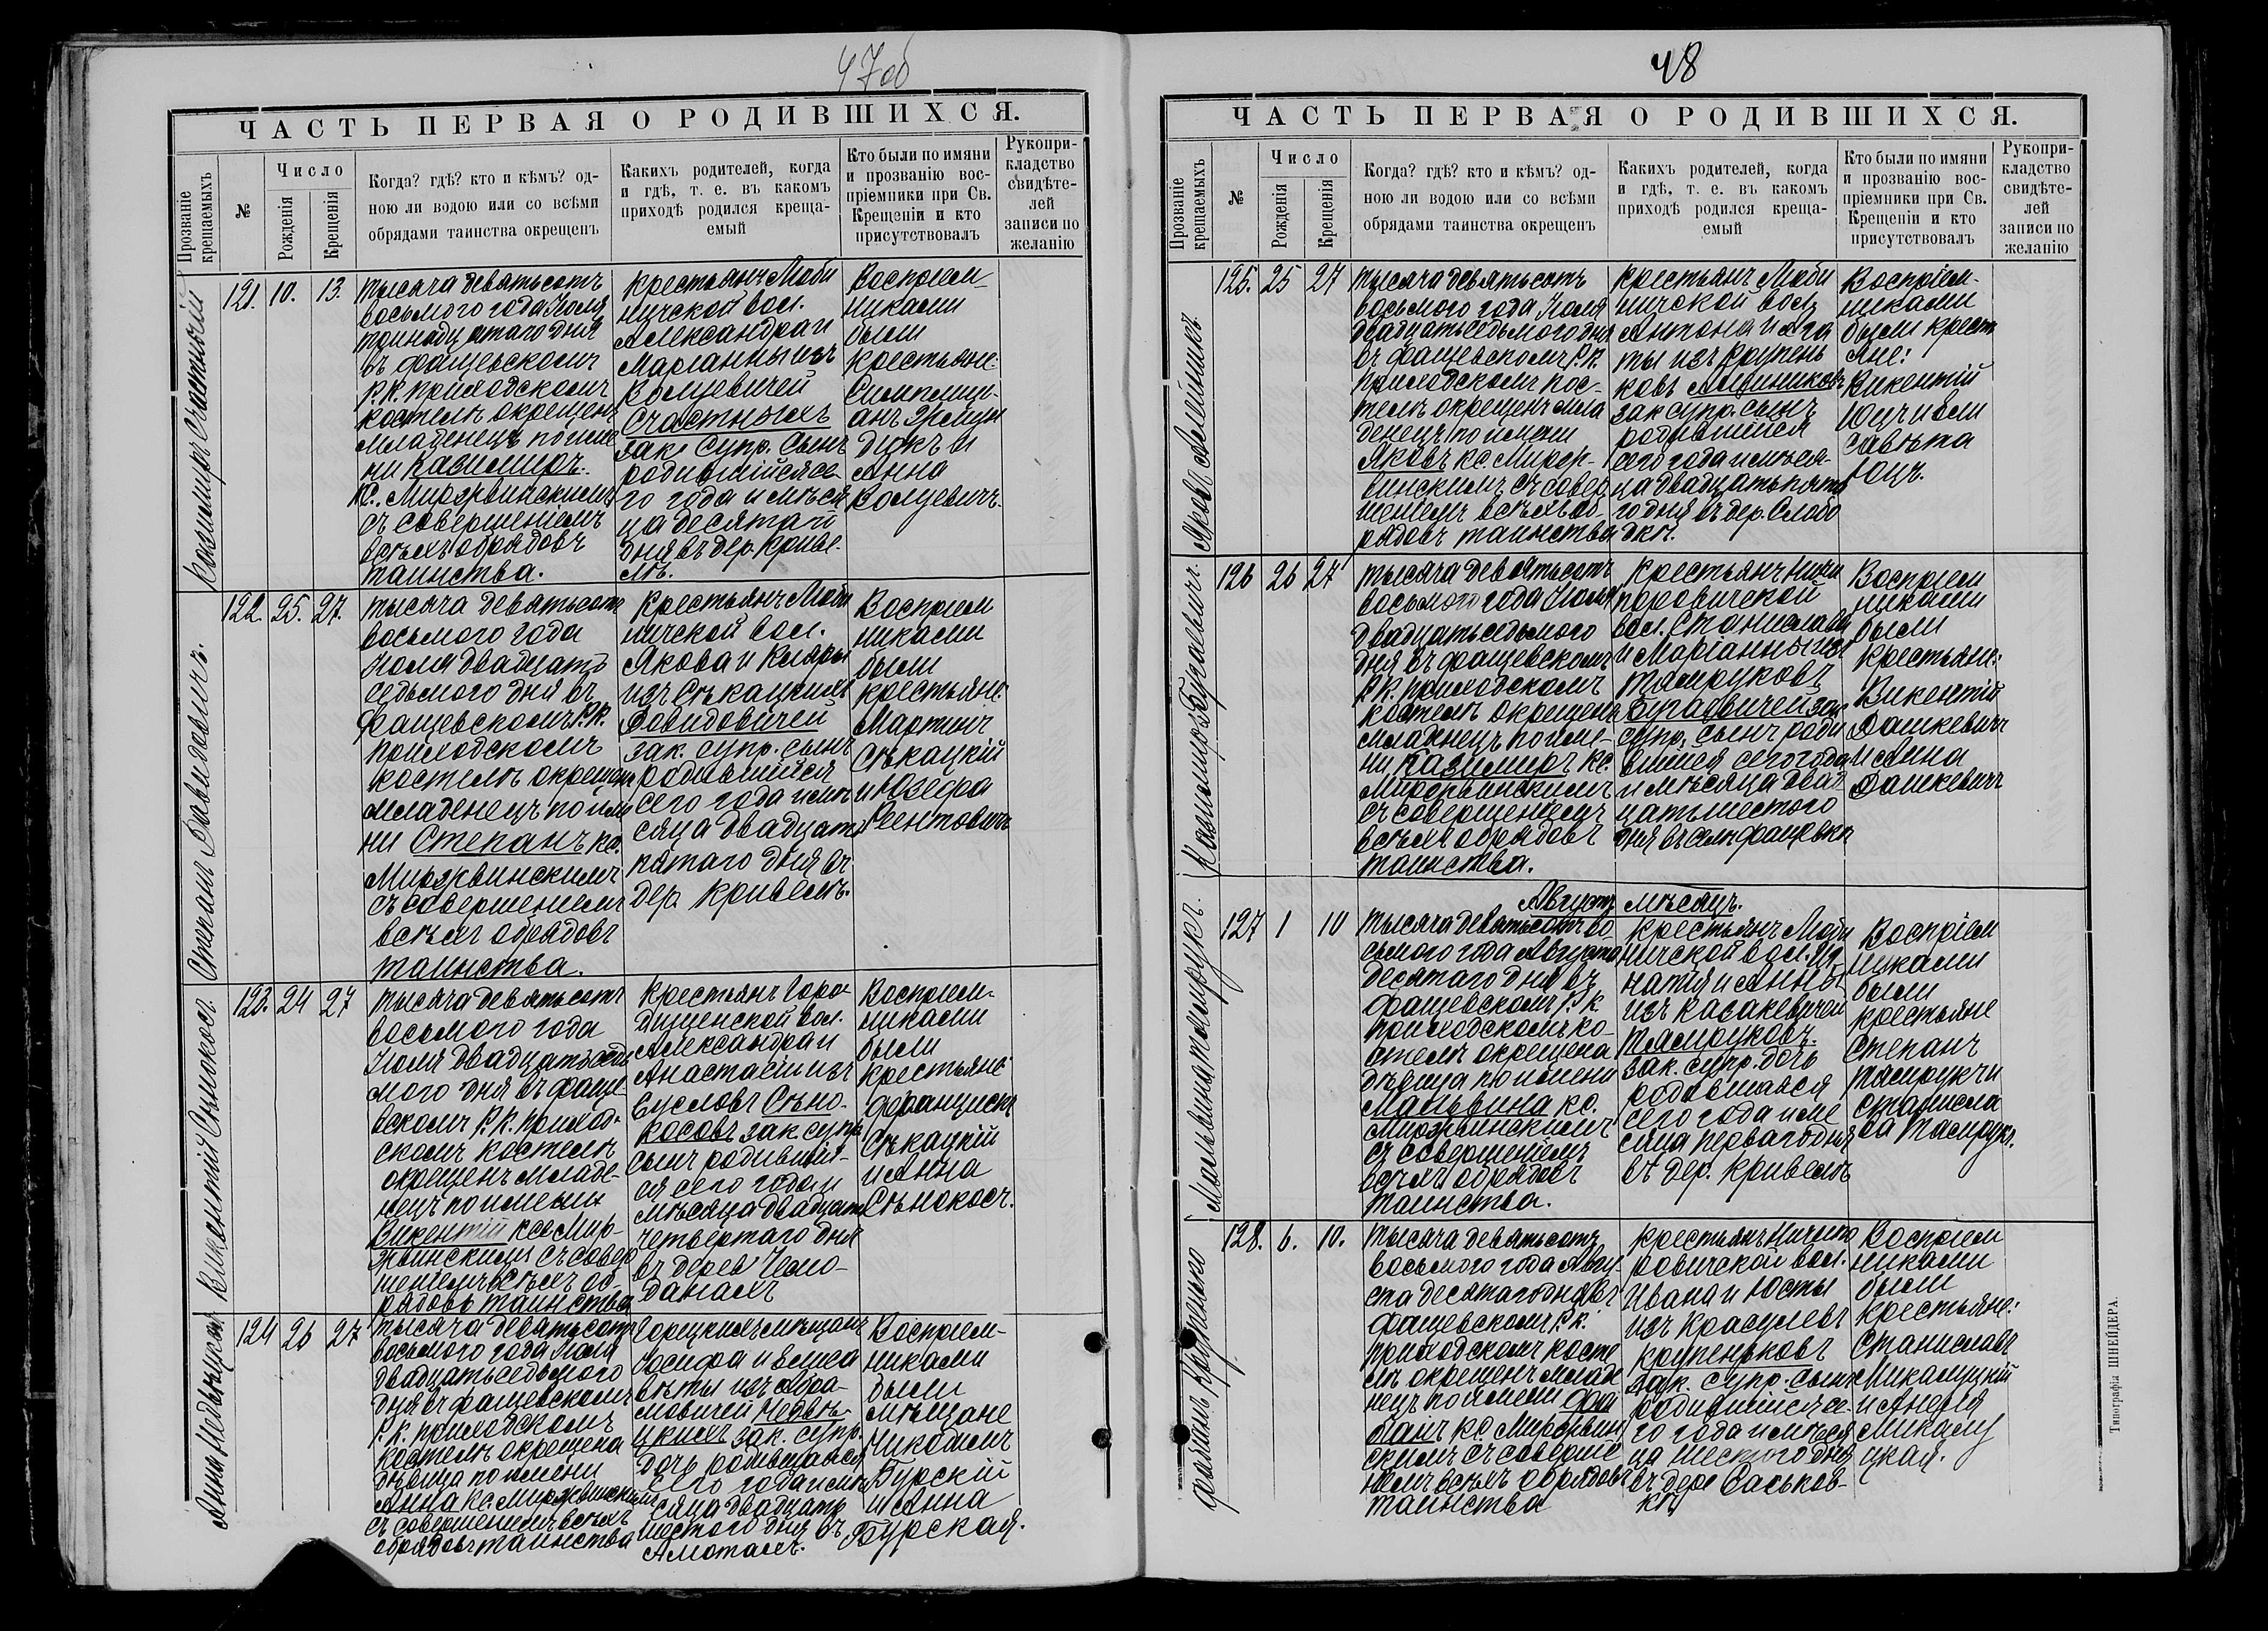 47об
ЧАСТЬ ПЕРВАЯ О РОДИВШИХСЯ.
Прозваніе крещаемыхъ
№
Число
Рожденія
Крещенія
Когда? гдѣ? кто и кѣмъ? од-
ною ли водою или со всѣми
обрядами таинства окрещенъ
Какихъ родителей, когда
и гдѣ, т. е. въ какомъ
приходѣ родился креща-
емый
Кто были по имяни
и прозванію вос-
пріемники при Св.
Крещеніи и кто
присутствовалъ
Рукопри-
кладство
свидѣте-
лей
записи по
желанію
Казимиръ Счастный
121. 10. 13.
тысяча девятьсотъ
восьмого года Іюля
тринадцатаго дня
въ Фащевскомъ
Р.К. приходскомъ
костелѣ окрещенъ
младенецъ по име
ни Казимиръ.
Кс. Мирзвинскимъ
съ совершеніемъ
всѣхъ обрядовъ
таинства.
Крестьянъ Люби
ничской вол.
Александра и
Маріанны изъ
Волцевичей
Счастныхъ
зак. Супр. Сынъ
родившійся се-
го года и мѣся
ца десятаго
дня въ дер. Криве-
лѣ.
Воспріем-
никами
были
крестьяне:
Симплици-
анъ
и
Анна
Волцевичъ.
Степанъ Давидовичъ.
122. 25. 27.
тысяча девятьсотъ
восьмого года
Іюля двадцать
седьмого дня въ
Фащевскомъ Р.К.
приходскомъ
костелѣ окрещенъ
младенецъ по име
ни Степанъ кс.
Мирзвинскимъ
съ совершеніемъ
всѣхъ обрядовъ
таинства.
Крестьянъ Люби
ничской вол.
Якова и Клары
изъ Сѣкацкихъ
Давидовичей
зак. супр. сынъ
родившійся
сего года и мѣ
сяца двадцать
пятаго дня въ
дер. Кривелѣ.
Воспріем
никами
были
крестьяне:
Мартинъ
Сѣкацкій
и Юзефа
Рентовичъ
Викентій Сѣнокосъ.
123. 24 27
тысяча девятьсотъ
восьмого года
Іюля двадцать седь
мого дня въ Фаще
вскомъ Р.К. приход-
скомъ костелѣ
окрещенъ младе-
нецъ по имени
Викентій ксе Мир-
звинскимъ съ совер
шеніемъ всѣхъ об-
рядовъ таинства
Крестьянъ Горо-
дищенской вол.
Александра и
Анастасіи изъ
Бусловъ Сѣно-
косовъ зак. супр.
сынъ родившій-
ся сего года и
мѣсяца двадцать
четвертаго дня
въ дерев
Воспріем-
никами
были
крестьяне
Францискъ
Сѣкацкій
и Анна
Сѣнокосъ.
Анна Недвѣцкая.
124 26 27
тысяча девятьсотъ
восьмого года Іюля
двадцать седьмого
дня въ Фащевскомъ
Р.К. приходскомъ
костелѣ окрещена
дѣвица по имени
Анна кс. Мирзвинскимъ
съ совершеніемъ всѣхъ
обрядовъ таинства
Горецкихъ мѣщанъ
Іосифа и Елиса
веты изъ Абра-
мовичей Недвѣ-
цкихъ зак. супр.
дочь родившаяся
сего года и мѣ
сяца двадцать
шестого дня въ
Воспріем-
никами
были
мѣщане
Никодимъ
Бурскій
и Анна
Бурская.
48
ЧАСТЬ ПЕРВАЯ О РОДИВШИХСЯ.
Прозваніе крещаемыхъ
№
Число
Рожденія
Крещенія
Когда? гдѣ? кто и кѣмъ? од-
ною ли водою или со всѣми
обрядами таинства окрещенъ
Какихъ родителей, когда
и гдѣ, т. е. въ какомъ
приходѣ родился креща-
емый
Кто были по имяни
и прозванію вос-
пріемники при Св.
Крещеніи и кто
присутствовалъ
Рукопри-
кладство
свидѣте-
лей
записи по
желанію
Яковъ Алейникъ.
125. 25 27
тысяча девятьсотъ
восьмого года Іюля
двадцать седьмого дня
въ Фащевскомъ Р.К.
приходскомъ кос-
телѣ окрещенъ мла
денецъ по имени
Яковъ кс. Мирзр-
винскимъ съ совер
шеніемъ всѣхъ об-
рядовъ таинства
Крестьянъ Люби
ничской вол.
Антона и Ага
ты изъ Крупень
ковъ Алейниковъ
зак супр. сынъ
родившійся
сего года и мѣся-
ца двадцать пята
го дня въ дер. Слобо
дкѣ.
Воспріем-
никами
были крест
яне:
Викентій
Юцъ
Юцъ.
Казиміръ Буевичъ.
126 26 27
тысяча девятьсотъ
восьмого года Іюля
двадцать седьмого
дня въ Фащевскомъ
Р.К. приходскомъ
костелѣ окрещенъ
младенецъ по име-
ни Казимиръ кс.
Мирзрвинскимъ
съ совершеніемъ
всѣхъ обрядовъ
таинства.
Крестьянъ Ничи
поровичской
вол. Станислава
и Маріанны изъ
Тамруковъ
зак
супр. сынъ роди
вшійся сего года
и мѣсяца двад
цать шестого
дня въ селѣ Фащевкѣ
Воспріем
никами
были
крестьяне:
Викентій
Дашкевичъ
и Анна
Дашкевичъ
Августъ мѣсяцъ.
Мальвина Тамрукъ.
127 1 10
тысяча девятьсотъ во
сьмого года Августа
десятаго дня въ
Фащевскомъ Р.К.
приходскомъ ко-
стелѣ окрещена
дѣвица по имени
Мальвина кс.
Мирзрвинскимъ
съ совершеніемъ
всѣхъ обрядовъ
таинства.
Крестьянъ Люби
ничской вол. Иг
натія и Анны
изъ Казакевичей
Тамруковъ.
зак. супр. дочь
родившаяся
сего года и мѣ
сяца перваго дня
въ дер. Кривелѣ
Воспріем
никами
были
крестьяне
Степанъ
Тамрукъ и
Станисла
ва Тамрукъ.
Фабіанъ Крупенько
128. 6. 10.
тысяча девятьсотъ
восьмого года Авгу
ста десятаго дня въ
Фащевскомъ Р.К.
приходскомъ косте
лѣ окрещенъ младе
нецъ по имени Фаб
іанъ кс. Мирзрвин
скимъ съ соверше
ніемъ всѣхъ обрядовъ
таинства
Крестьянъ Ничипо
ровичской вол.
Ивана и Юсты
изъ Красулевъ
Крупеньковъ
зак. супр. сынъ
родившійся се-
го года и мѣся
ца шестого дня
въ дер. Саськов-
кѣ
Воспріем
никами
были
крестьяне:
Станиславъ
Микалуцкій
и Анеля
Микалу
цкая.
Типографія ШНЕЙДЕРА.